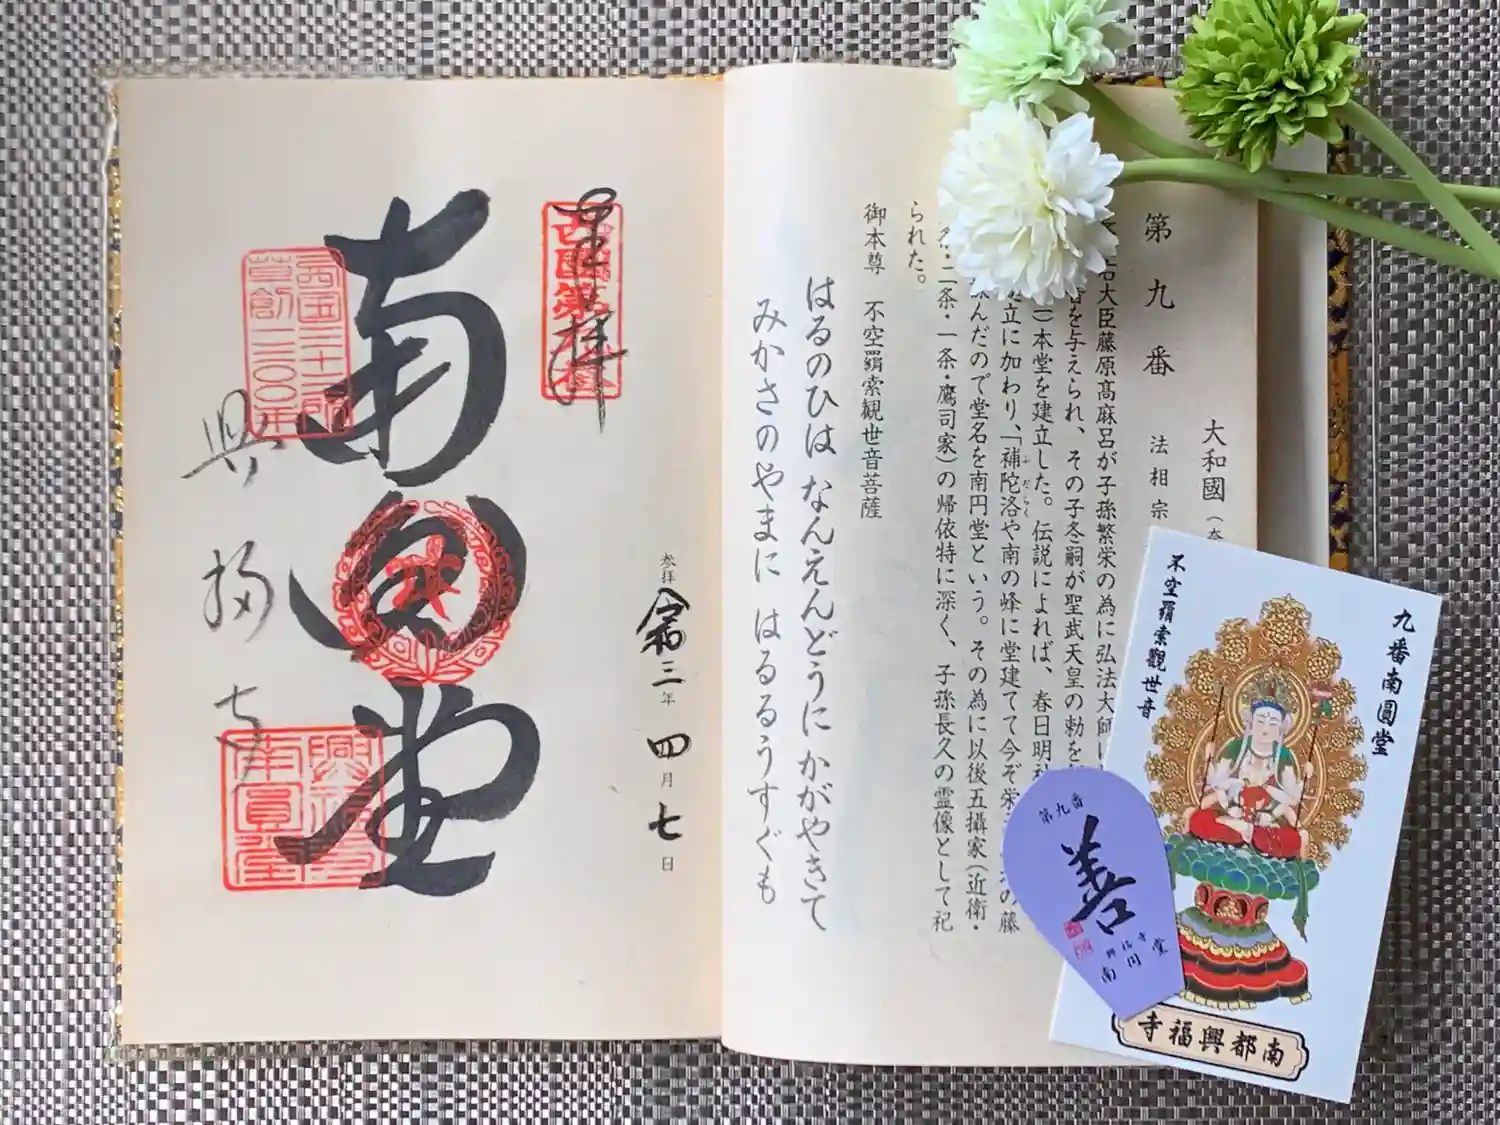 第九番
法相宗
大和國（奈
右大臣藤原高麻呂が子孫繁栄の為に弘法大師に
を与えられ、その子冬嗣が聖武天皇の勅を
本堂を建立した。伝説によれば、春日明神
立に加わり、「補陀洛や南の峰に堂建てて今ぞ栄
ふだらく
の藤
詠んだので堂名を南円堂という。その為に以後五攝家（近衛・
二条・一条・鷹司家）の帰依特に深く、子孫長久の霊像として祀
られた。
御本尊 不空羂索観世音菩薩
はるのひは なんえんどうに かがやきて
みかさのやまに はるるうすぐも
奉拝
西国第九番
参拝 令和三年 四月 七日
南円堂
西国三十三所
草創一三〇〇年
興福寺
興福寺
南圓堂
九番南圓堂
不空羂索觀世音
南都興福寺
第九番
善
興福寺
南円堂